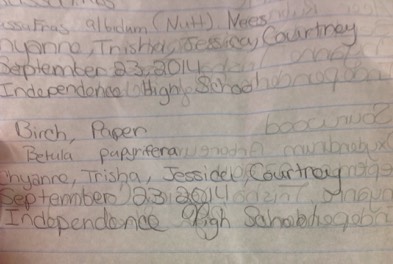 albidum (Nutt) Nees
nyanne, Trisha, Jessica, Courtney
September 23, 2014
Independence High School
Birch, Paper
Betula papyrifera
nyanne, Trisha, Jessica, Courtney
September 23, 2014
Independence High School